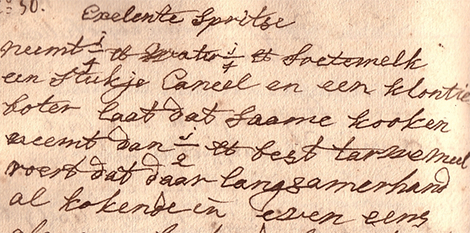 50.
Exelente Spritse
neemt 1/4 ℔ water 1/4 ℔ soetemelk
een stukje Caneel en een klontie
boter laat dat saame kooken
neemt dan 1/2 ℔ best tarwemeel
roert dat daar langsamerhand
al kokende in even eens